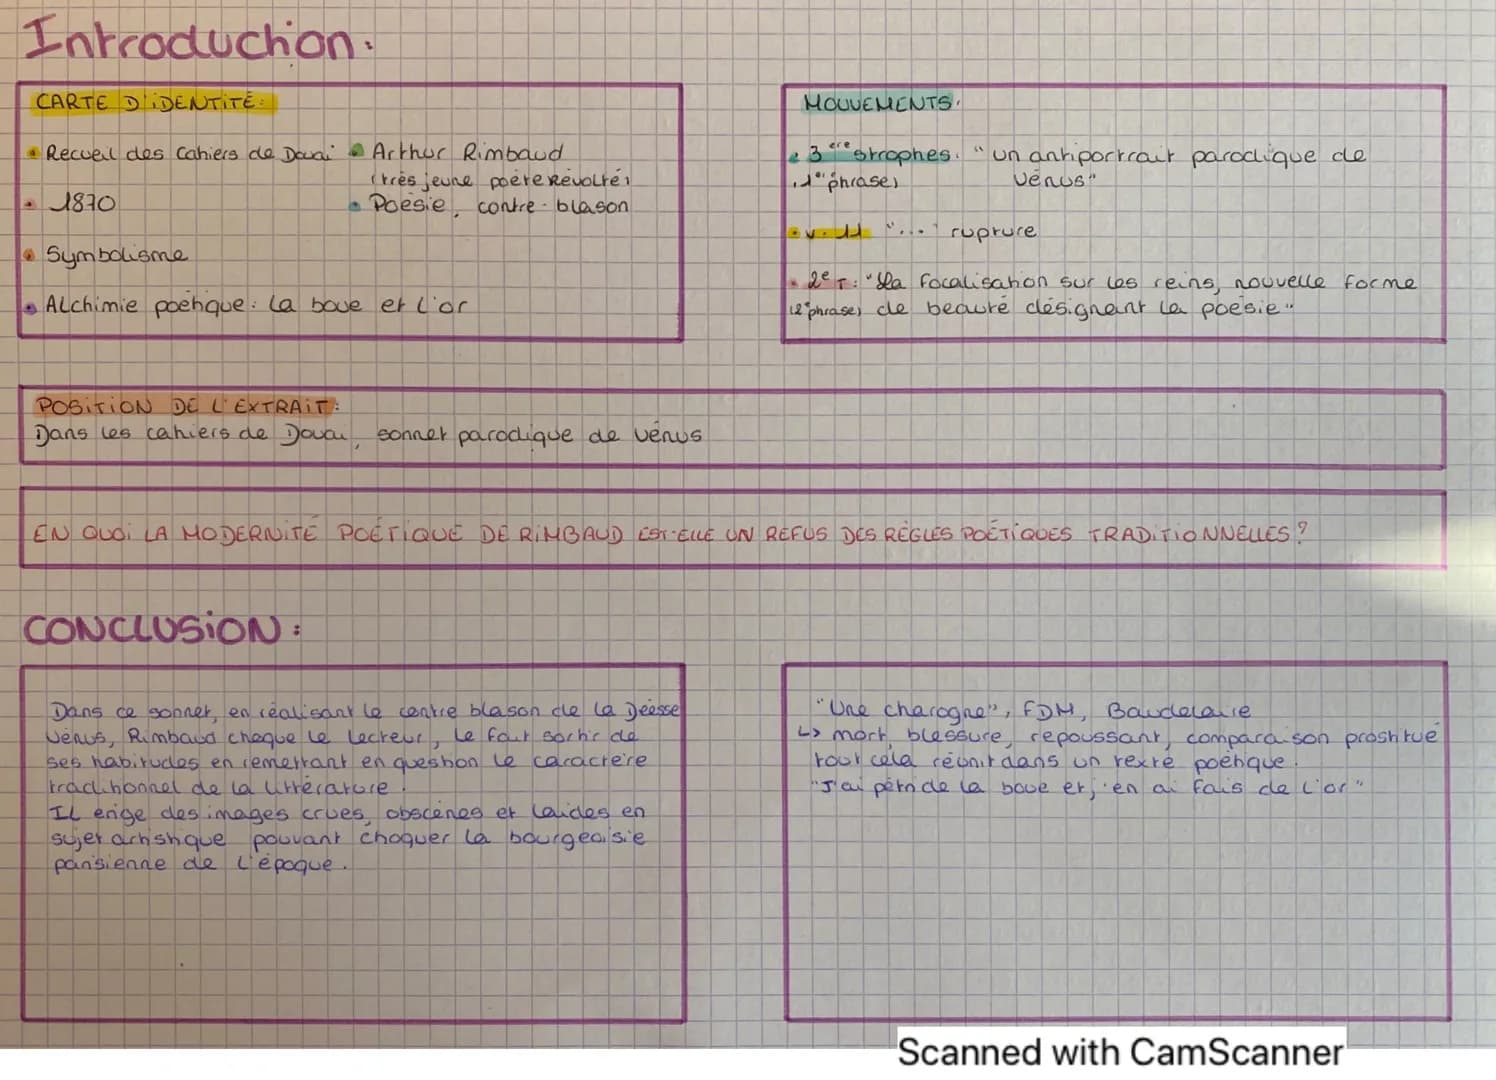 Introduction.
CARTE D'IDENTITÉ:
Recueil des Cahiers de Douai
Arthur Rimbaud
(très jeune poète révolté)
1870
Poésie, contre-blason
Symbolisme
Alchimie poétique: la boue et l'or
MOUVEMENTS.
3ère strophes. "un antiportrait parodique de
(1e phrase) Vénus"
v. 11 "..." rupture
2e T: "La focalisation sur les reins, nouvelle forme
(2e phrase) de beauté désignant la poésie"
POSITION DE L'EXTRAIT:
Dans les cahiers de Douai, sonnet parodique de vénus
EN QUOI LA MODERNITÉ POÉTIQUE DE RIMBAUD EST-ELLE UN REFUS DES RÈGLES POÉTIQUES TRADITIONNELLES?
CONCLUSION:
Dans ce sonnet, en réalisant le contre blason de la Déesse
Vénus, Rimbaud choque le lecteur, le fait sortir de
ses habitudes en remettant en question le caractère
traditionnel de la littérature.
Il érige des images crues, obscènes et laides en
sujet artistique pouvant choquer la bourgeoisie
parisienne de l'époque.
"Une charogne", FDM, Baudelaire
↳ mort, blessure, repoussant, comparaison prostitué
tout cela réunit dans un texte poétique.
"J'ai pétri de la boue et j'en ai fais de l'or"
Scanned with CamScanner